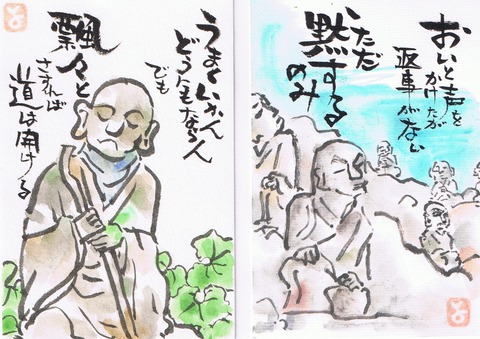 うまくいかん
どうにもならん
でも
飄々と
さすれば
道は開ける
おいと声を
かけたが
返事がない
ただ
黙する
のみ